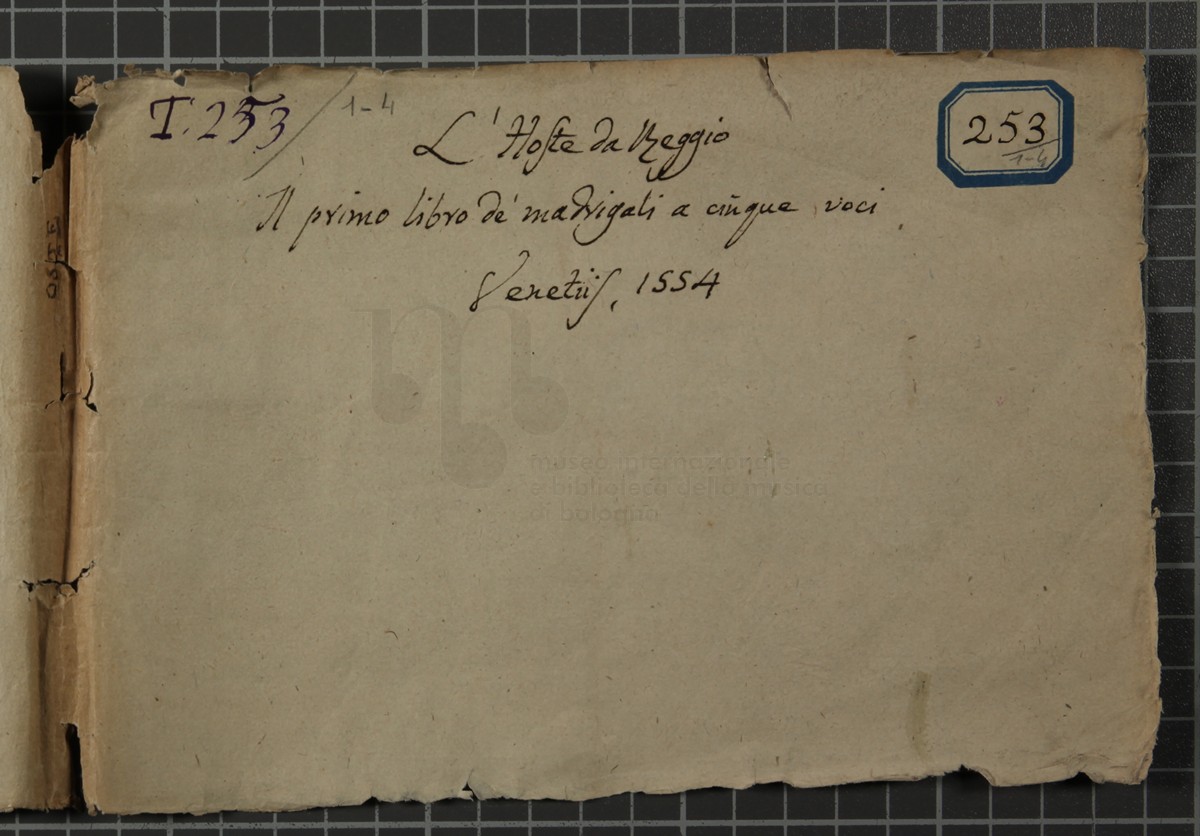 T. 253 / 1-4
253
1-4
L'Hoste da Reggio
Il primo libro de' madrigali a cinque voci.
Venetiis, 1554
OSTE
museo internazionale
e biblioteca della musica
di bologna